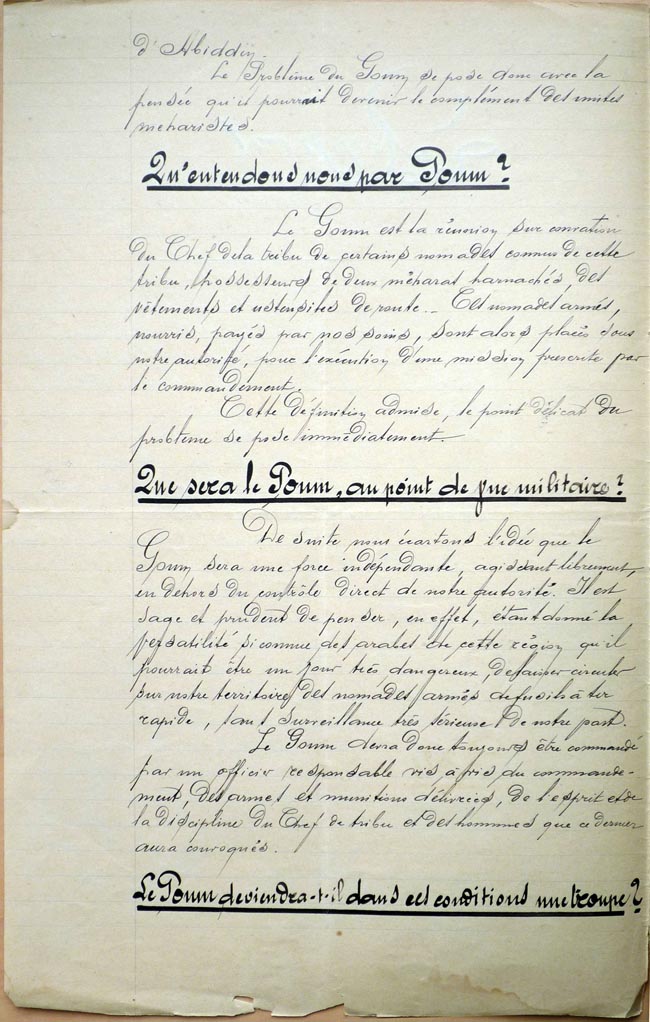 d'Abiddin.
Le Problème du Goum se pose donc avec la
pensée qu'il pourrait devenir le complément des unités
méharistes.
Qu'entendons nous par Goum ?
Le Goum est la réunion sur convocation
du Chef de la tribu de certains nomades connus de cette
tribu, possesseurs de deux méhara harnachés, des
vêtements et ustensiles de route._ Ces nomades armés,
nourris, payés par nos soins, sont alors placés sous
notre autorité, pour l'exécution d'une mission prescrite par
le commandement.
Cette définition admise, le point délicat du
problème se pose immédiatement.
Que sera le Goum, au point de vue militaire ?
De suite nous écartons l'idée que le
Goum sera une force indépendante, agissant librement,
en dehors du contrôle direct de notre autorité. Il est
sage et prudent de penser, en effet, étant donné la
versatilité si connue des arabes de cette région qu'il
pourrait être un jour très dangereux, de laisser circuler
sur notre territoire des nomades armés de fusils à tir
rapide, sans surveillance très sérieuse de notre part.
Le Goum devra donc toujours être commandé
par un officier responsable vis à vis du commande-
ment, des armes et munitions délivrées, de l'esprit et de
la discipline du Chef de tribu et des hommes que ce dernier
aura convoqués.
Le Goum deviendra-t-il dans ces conditions une troupe ?